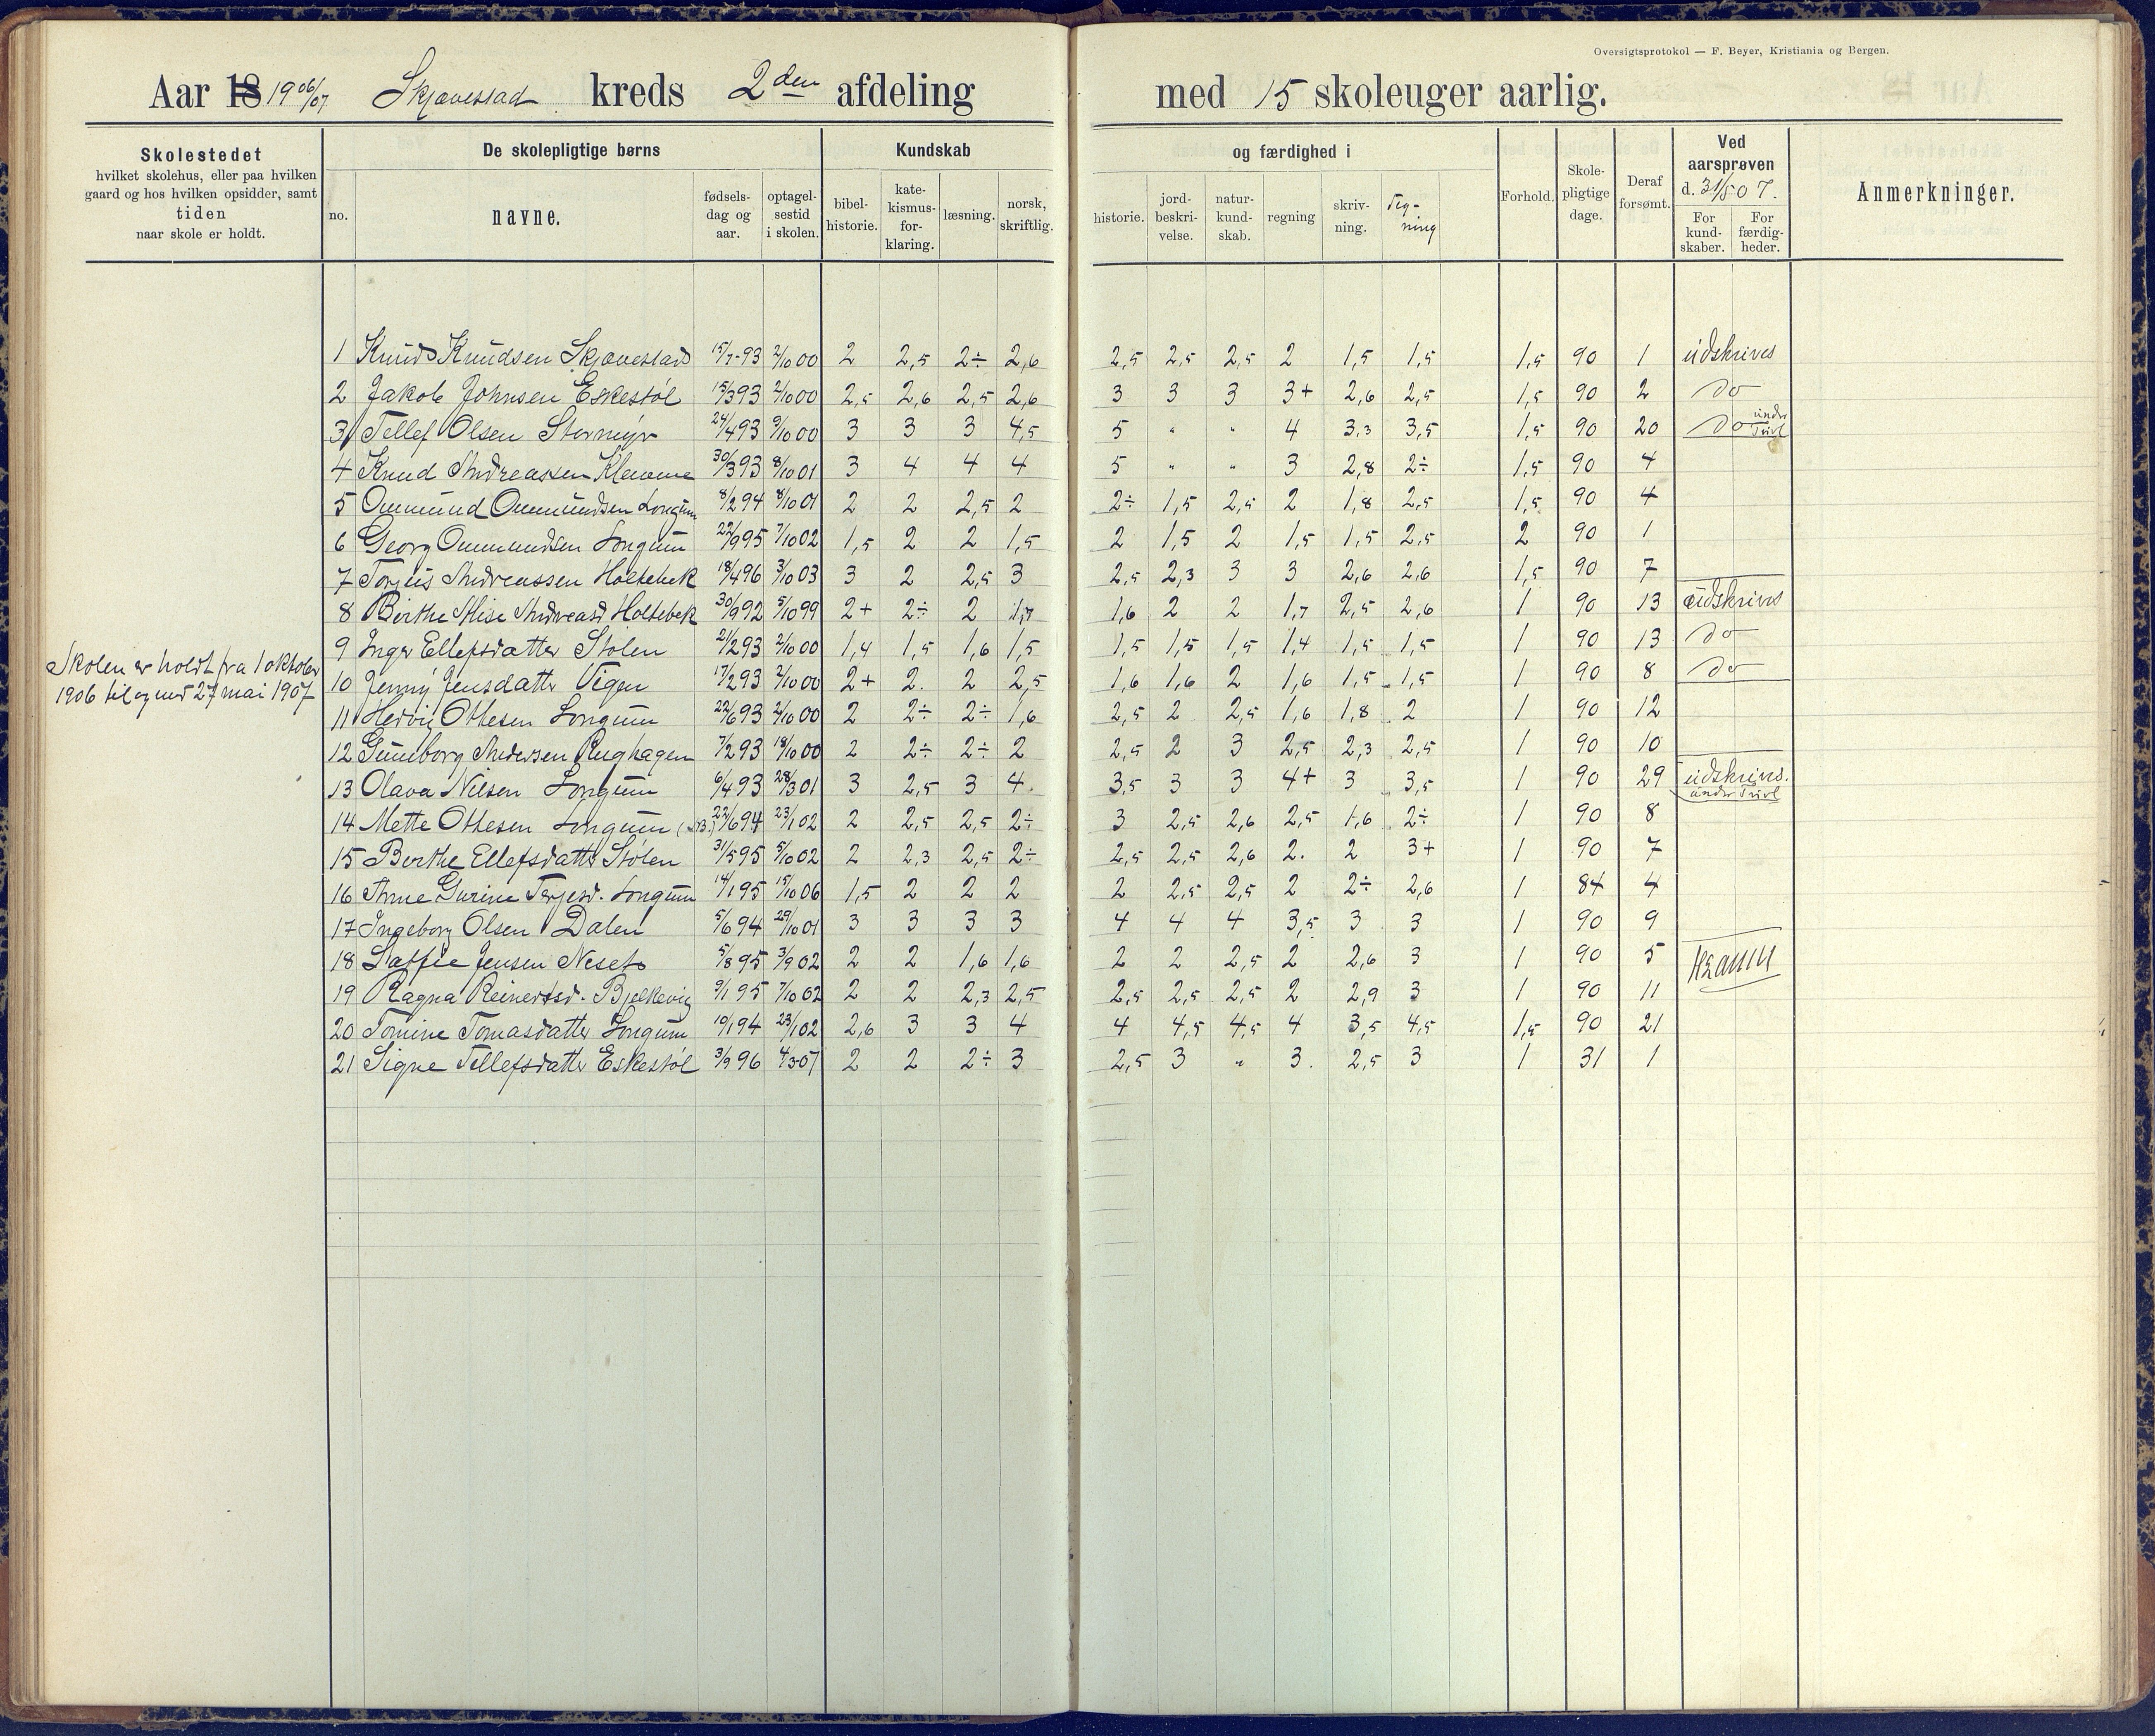 Oversigtsprotokol — F. Beyer, Kristiania og Bergen.
Aar 18 19 06/07 Skjævestad kreds 2den afdeling med 15 skoleuger aarlig.
Skolestedet
hvilket skolehus, eller paa hvilken
gaard og hos hvilken opsidder, samt
tiden
naar skole er holdt.
De skolepligtige børns
no.
navne.
fødsels-
dag og
aar.
optagel-
sestid
i skolen.
Kundskab
bibel-
historie.
kate-
kismus-
for-
klaring.
læsning.
norsk,
skriftlig.
og færdighed i
historie.
jord-
beskri-
velse.
natur-
kund-
skab.
regning
skriv-
ning.
Teg-
ning
Forhold.
Skole-
pligtige
dage.
Deraf
forsømt.
Ved
aarsprøven
d. 31/5 07.
For
kund-
skaber.
For
færdig-
heder.
Anmerkninger.
Skolen er holdt fra 1 oktober
1906 til og med 27 mai 1907
1 Knud Knudsen Skjævestad 15/7-93 2/10 00 2 2,5 2÷ 2,6 2,5 2,5 2,5 2 1,5 1,5 1,5 90 1 udskrives
2 Jakob Johnsen Eskestøl 15/3 93 2/10 00 2,5 2,6 2,5 2,6 3 3 3 3+ 2,6 2,5 1,5 90 2 do
3 Tellef Olsen Stormyr 24/4 93 9/10 00 3 3 3 4,5 5 " " 4 3,3 3,5 1,5 90 20 do under Tvivl
4 Knud Andreassen Klemme 30/3 93 8/10 01 3 4 4 4 5 " " 3 2,8 2÷ 1,5 90 4
5 Ommund Ommundsen Longum 8/2 94 8/10 01 2 2 2,5 2 2÷ 1,5 2,5 2 1,8 2,5 1,5 90 4
6 Georg Ommundsen Longum 22/9 95 7/10 02 1,5 2 2 1,5 2 1,5 2 1,5 1,5 2,5 2 90 1
7 Torjus Andreassen Holtebek 18/4 96 3/10 03 3 2 2,5 3 2,5 2,3 3 3 2,6 2,6 1,5 90 7
8 Birthe Elise Andreasd Holtebek 30/9 92 5/10 99 2+ 2÷ 2 1,7 1,6 2 2 1,7 2,5 2,6 1 90 13 udskrives
9 Inger Ellefsdatter Stølen 21/2 93 2/10 00 1,4 1,5 1,6 1,5 1,5 1,5 1,5 1,4 1,5 1,5 1 90 13 do
10 Jenny Jensdatter Vigen 17/2 93 2/10 00 2+ 2. 2 2,5 1,6 1,6 2 1,6 1,5 1,5 1 90 8 do
11 Hedvig Ottesen Longum 22/6 93 2/10 00 2 2÷ 2÷ 1,6 2,5 2 2,5 1,6 1,8 2 1 90 12
12 Gunborg Andersen Rughagen 7/2 93 18/10 00 2 2÷ 2÷ 2 2,5 2 3 2,5 2,3 2,5 1 90 10
13 Olava Nilsen Longum 6/4 93 28/3 01 3 2,5 3 4. 3,5 3 3 4+ 3 3,5 1 90 29 udskrives.
under Tvivl
14 Mette Ottesen Longum (NB.) 22/6 94 23/1 02 2 2,5 2,5 2÷ 3 2,5 2,6 2,5 1,6 2÷ 1 90 8
15 Berthe Ellefsdatter Stølen 31/5 95 5/10 02 2 2,3 2,5 2÷ 2,5 2,5 2,6 2. 2 3+ 1 90 7
16 Anne Gurine Terjesd. Longum 14/1 95 15/10 06 1,5 2 2 2 2 2,5 2,5 2 2÷ 2,6 1 84 4
17 Ingeborg Olsen Dalen 5/6 94 29/10 01 3 3 3 3 4 4 4 3,5 3 3 1 90 9
18 Jensen Neset 5/8 95 3/9 02 2 2 1,6 1,6 2 2 2,5 2 2,6 3 1 90 5
19 Ragna Reinertsd. Bjelkevig 9/1 95 7/10 02 2 2 2,3 2,5 2,5 2,5 2,5 2 2,9 3 1 90 11
20 Tomine Tomasdatter Longum 10/1 94 23/1 02 2,6 3 3 4 4 4,5 4,5 4 3,5 4,5 1,5 90 21
21 Signe Tellefsdatter Eskestøl 3/9 96 4/3 07 2 2 2÷ 3 2,5 3 " 3. 2,5 3 1 31 1